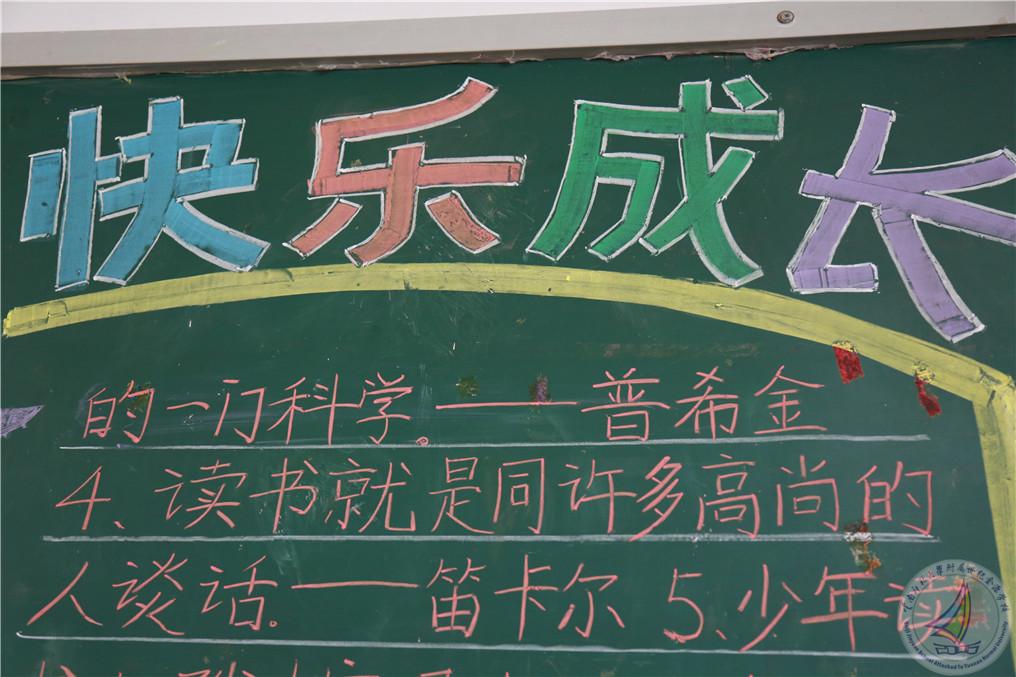 快乐成长
的一门科学。——普希金
4、读书就是同许多高尚的
人谈话。——笛卡尔 5、少年读